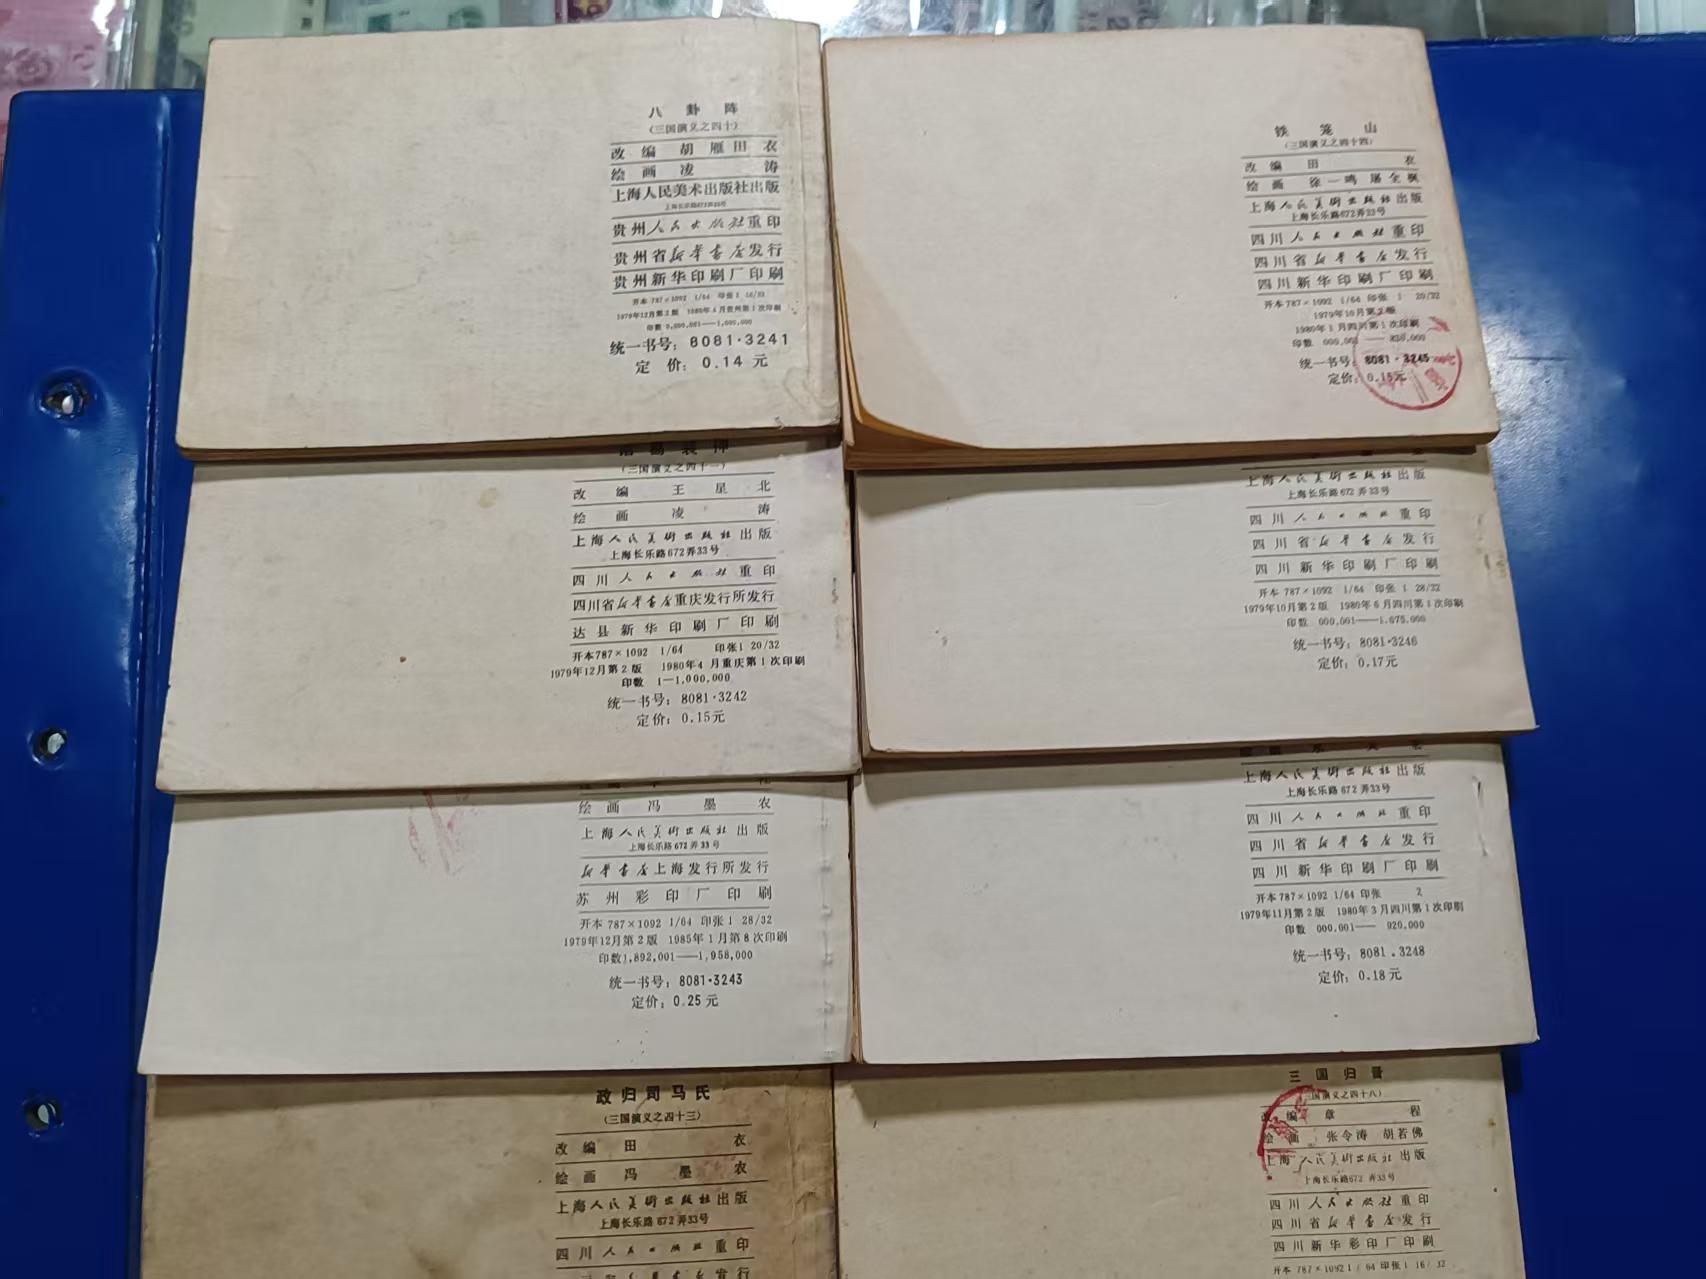 八卦阵
(三国演义之四十)
改编 胡雁田衣
绘画 凌涛
上海人民美术出版社出版
上海长乐路672弄33号
贵州人民出版社重印
贵州省新华书店发行
贵州新华印刷厂印刷
开本 787×1092 1/64 印张 1 16/32
1979年12月第2版 1980年4月贵州第1次印刷
印数 0,000,001——1,000,000
统一书号：8081·3241
定价：0.14 元
(三国演义之四十一)
改编 王星北
绘画 凌涛
上海人民美術出版社出版
上海长乐路672弄33号
四川人民出版社重印
四川省新华书店重庆发行所发行
达县新华印刷厂印刷
开本787×1092 1/64 印张1 20/32
1979年12月第2版 1980年4月重庆第1次印刷
印数 1—1,000,000
统一书号：8081·3242
定价：0.15元
绘画 冯墨农
上海人民美術出版社出版
上海长乐路672弄33号
新华书店上海发行所发行
苏州彩印厂印刷
开本 787×1092 1/64 印张1 28/32
1979年12月第2版 1985年1月第8次印刷
印数1,892,001——1,958,000
统一书号：8081·3243
定价：0.25元
政归司马氏
(三国演义之四十三)
改编 田衣
绘画 冯墨农
上海人民美術出版社出版
上海长乐路672弄33号
四川人民出版社重印
铁笼山
(三国演义之四十四)
改编 田衣
绘画 徐一鸣 屠全枫
上海人民美術出版社出版
上海长乐路672弄33号
四川人民出版社重印
四川省新华书店发行
四川新华印刷厂印刷
开本787×1092 1/64 印张 1 20/32
1979年10月第2版
1980年1月四川第1次印刷
印数 000,001——830,000
统一书号：8081·3245
定价：0.15元
上海人民美術出版社出版
上海长乐路672弄33号
四川人民出版社重印
四川省新华书店发行
四川新华印刷厂印刷
开本 787×1092 1/64 印张1 28/32
1979年10月第2版 1980年6月四川第1次印刷
印数 000,001——1,675,000
统一书号：8081·3246
定价：0.17元
上海人民美術出版社出版
上海长乐路672弄33号
四川人民出版社重印
四川省新华书店发行
四川新华印刷厂印刷
开本 787×1092 1/64 印张 2
1979年11月第2版 1980年3月四川第1次印刷
印数 000,001——920,000
统一书号：8081.3248
定价：0.18元
三国归晋
三国演义之四十八)
改编 章程
绘画 张令涛 胡若佛
上海人民美術出版社出版
上海长乐路672弄33号
四川人民出版社重印
四川省新华书店发行
四川新华彩印厂印刷
开本 787×1092 1/64 印张1 16/32